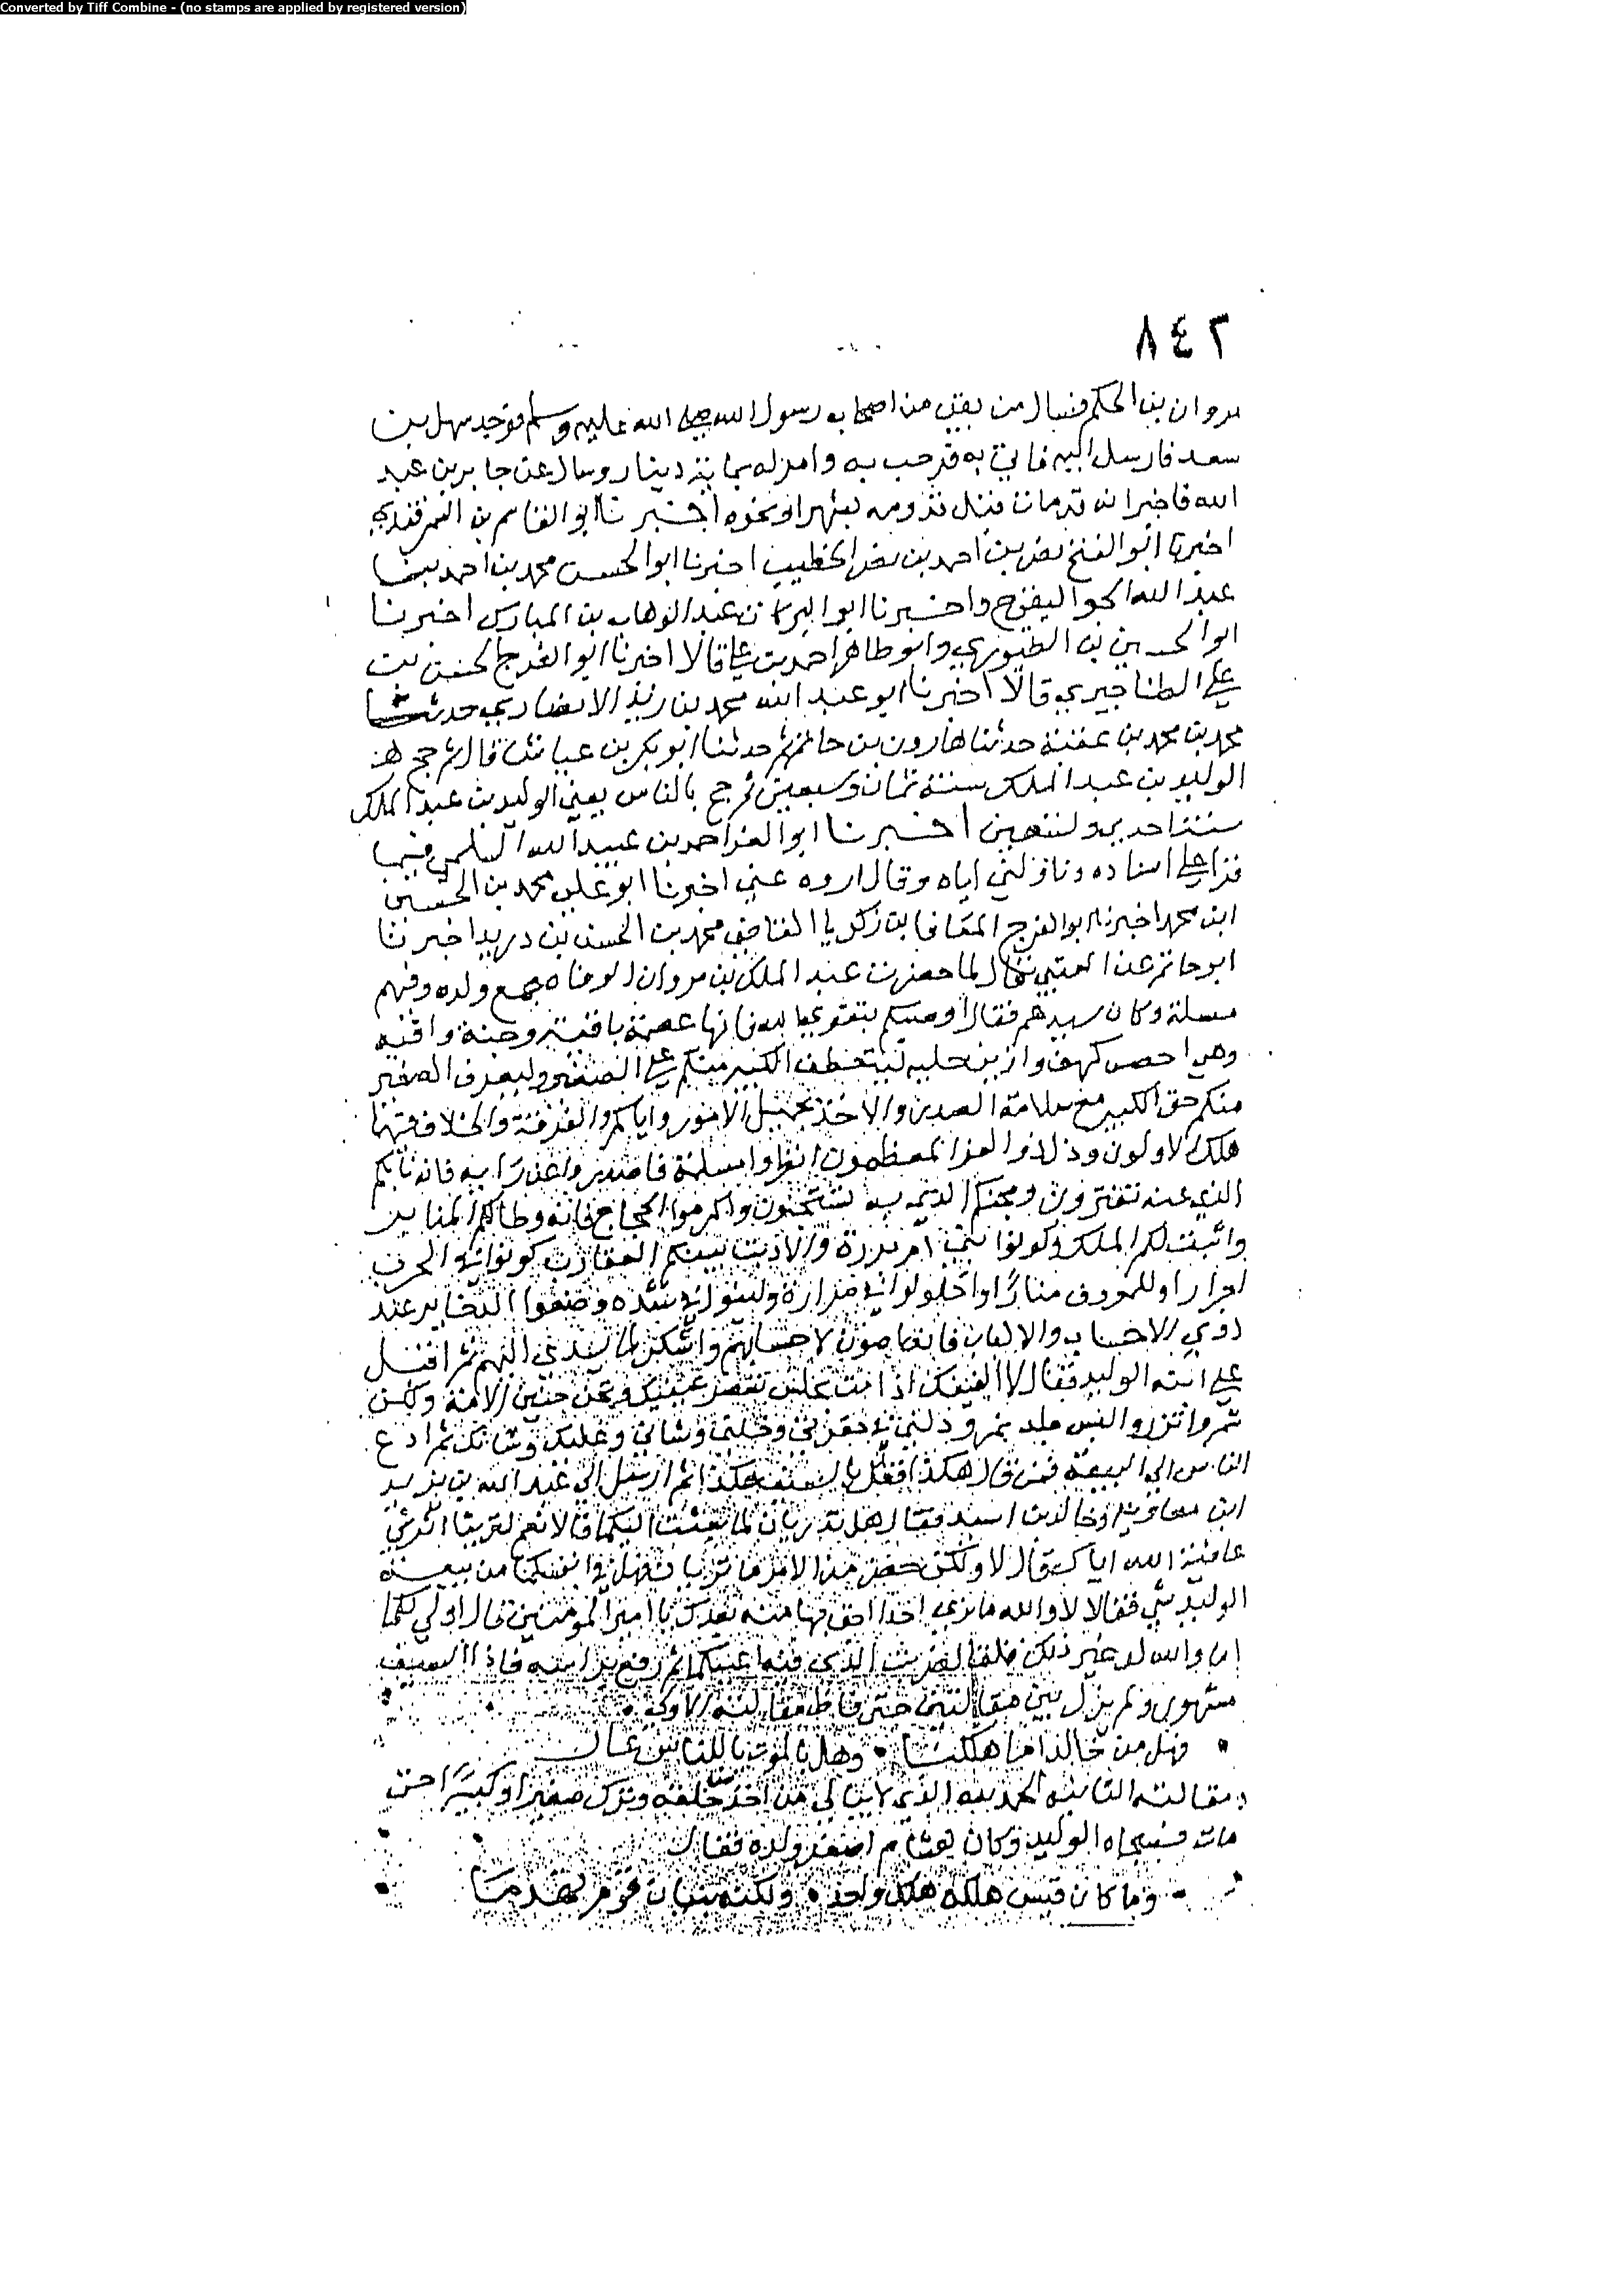 Converted by Tiff Combine - (no stamps are applied by registered version)
٨٤٢
مروان بن الحكم فسال من بقي من اصحاب رسول الله صلى الله عليه وسلم فوجد سهل بن
سعد فارسل اليه فاتي به فرحب به وامر له بماية دينار وسال عن جابر بن عبد
الله فاخبر انه قد مات قبل قدومه بشهر او نحوه اخبرنا ابو القاسم بن السمرقندي
اخبرنا ابو الفتح نصر بن احمد بن نصر الخطيب اخبرنا ابو الحسن محمد بن احمد بن
عبد الله الجواليقي ح واخبرنا ابو البركات عبد الوهاب بن المبارك اخبرنا
ابو الحسين بن الطيوري وابو طاهر احمد بن علي قالا اخبرنا ابو الفرج الحسين بن
علي الطناجيري قالا اخبرنا ابو عبد الله محمد بن زيد الانصاري حدثنا
محمد بن محمد بن عقبة حدثنا هارون بن حاتم حدثنا ابو بكر بن عياش قال ثم حج
الوليد بن عبد الملك سنة ثمان وسبعين ثم حج بالناس يعني الوليد بن عبد الملك
سنة احدي وتسعين اخبرنا ابو العز احمد بن عبيد الله السلمي فيما
قرا علي اسناده وناولني اياه وقال اروه عني اخبرنا ابو علي محمد بن الحسين
ابن محمد اخبرنا ابو الفرج المعافا بن زكريا القاضي محمد بن الحسن بن دريد اخبرنا
ابو حاتم عن العتبي قال لما حضرت عبد الملك بن مروان الوفاه جمع ولده وفيهم
مسلمة وكان سيدهم فقال اوصيكم بتقوي الله فانها عصمة باقية وجنة واقيه
وهي احصن كهف وازين حليه ليتعطف الكبير منكم علي الصغير وليعرف الصغير
منكم حق الكبير مع سلامة الصدر والاخذ بجميل الامور واياكم والفرقة والخلاف فبهما
هلك الاولون وذل ذو العز المعظمون انظروا مسلمة فاصدروا عن رايه فانه نابكم
الذي عنه تفترون ومجنكم الذي به تستجنون واكرموا الحجاج فانه وطا لكم المنابر
واثبت لكم الملك وكونوا بني ام بررة والا دبت بينكم العقارب كونوا في الحرب
احرارا وللمعروف منارا واحلولوا في مرارة ولينوا في شده وضعوا الذخاير عند
ذوي الاحساب والالباب فانه اصون لاحسابهم واشكر لما يسدي اليهم ثم اقبل
علي ابنه الوليد فقال لا الفينك اذا مت تجلس تعصر عينيك وتحن حنين الامة ولكن
شمر واتزر والبس جلد نمر ودلني في حفرتي وخلني وشاني وعليك وشانك ثم ادع
الناس الي البيعة فمن قال هكذا فقل بالسيف هكذا ثم ارسل الي عبد الله بن يزيد
ابن معاوية وخالد بن اسيد فقال هل تدريان لما بعثت اليكما قالا نعم لترينا اثر
عافية الله اياك قال لا ولكن حضر من الامر ما تريان فهل في انفسكما من بيعة
الوليد شي فقالا لا والله ما نري احدا احق بها منه بعدك يا امير المؤمنين قال اولي لكما
اما والله لو غير ذلك قلتما لضربت الذي فيه اعينكما ثم رفع فراشه فاذا السيف
مشهور ولم يزل بين مقالتين حتي فاظ مقالته الاولي
فهل من خالد اما هلكنا • وهل بالموت يا للناس عار
ومقالته الثانيه الحمد لله الذي لا يبالي من اخذ خلفه وترك صغيرا او كبيرا حتي
مات فسجاه الوليد وكان هشام اصغر ولده فقال
وما كان قيس هلكه هلك واحد • ولكنه بنيان قوم تهدما